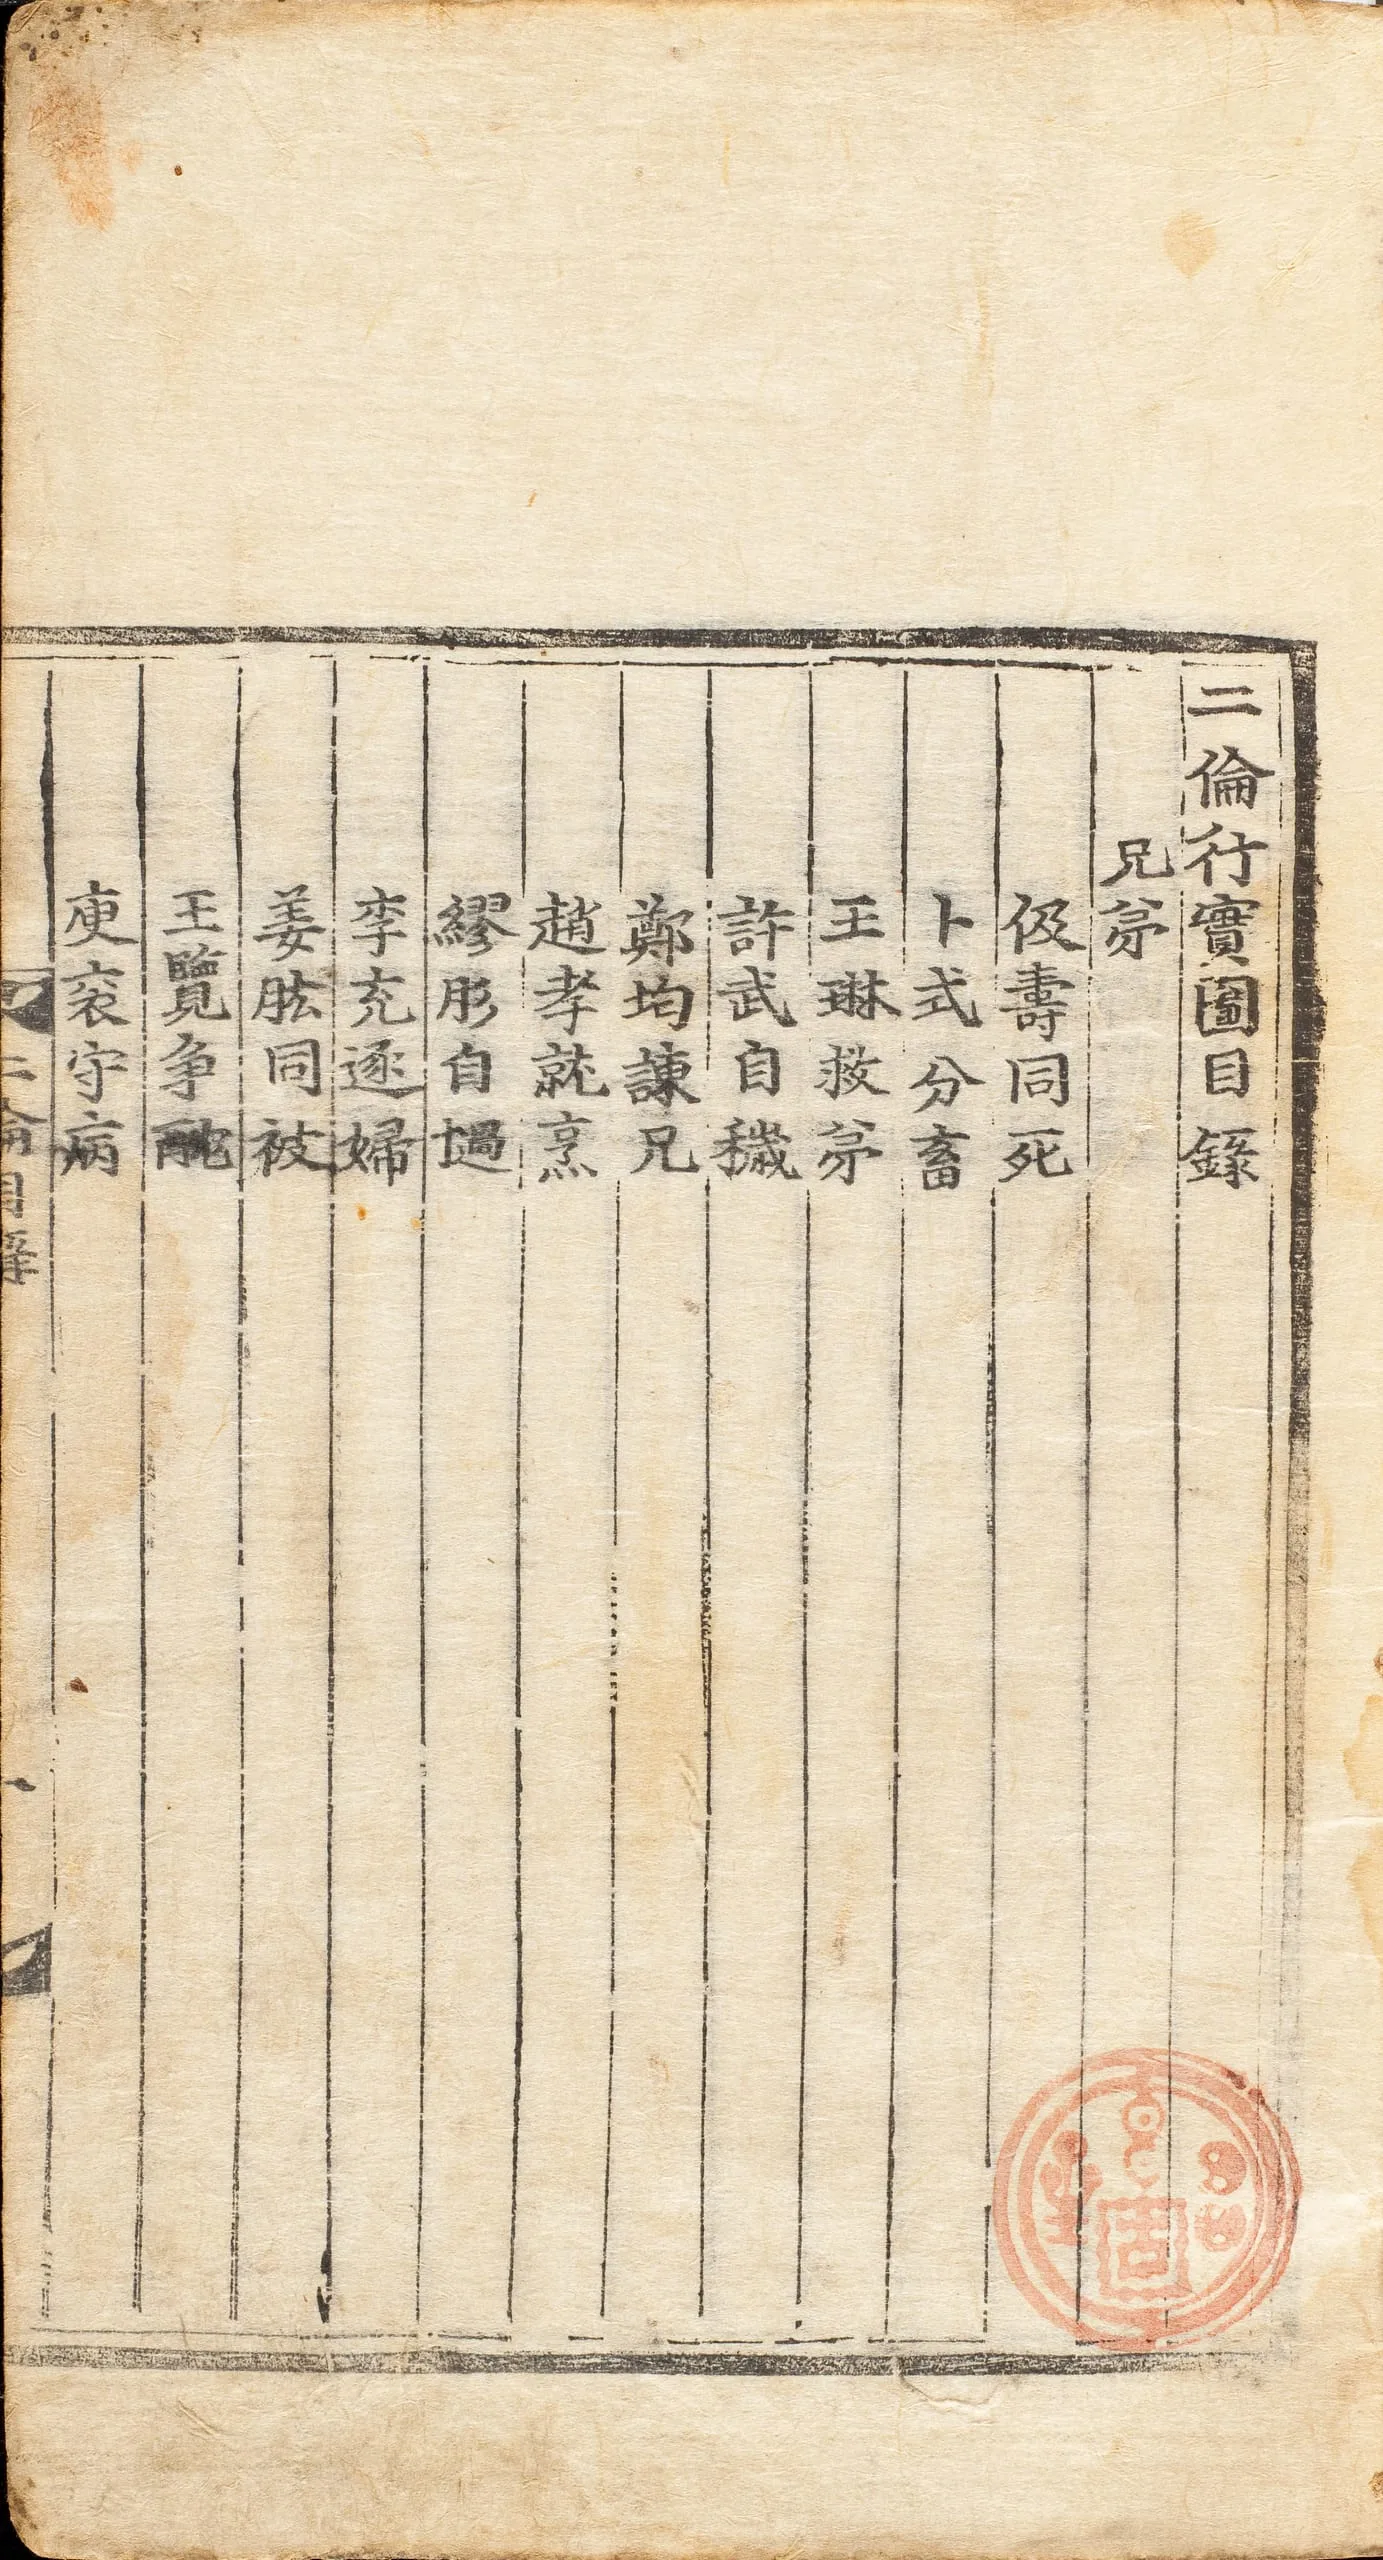 二倫行實圖目錄
兄弟
伋壽同死
卜式分畜
王琳救弟
許武自穢
鄭均諫兄
趙孝就烹
繆肜自撾
李充逐婦
姜肱同被
王覽爭酖
庾袞守病
二倫目錄
一